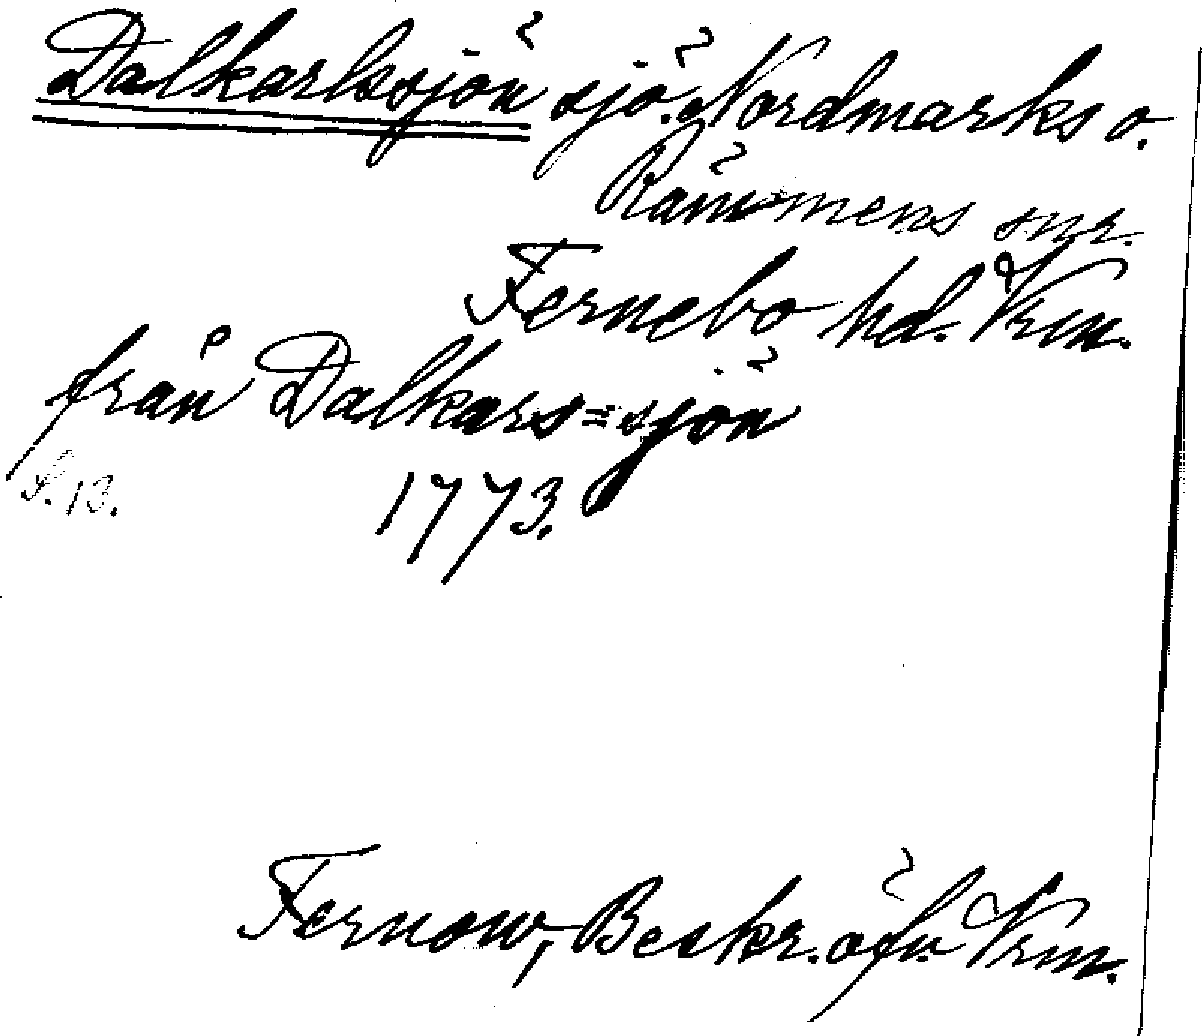 Dalkarlssjön sjö. Nordmarks o.
Rämmens snr.
Fernebo hd. Vrm.
från Dalkars=sjön
S. 13.
1773.
Fernow, Beskr. öfv. Vrm.